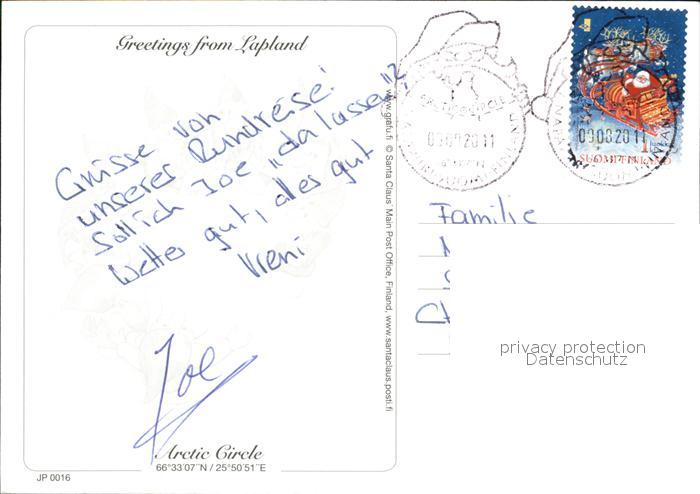 Greetings from Lapland
Grüsse von
unserer Rundreise!
Soll ich Joe „da lassen"?
Wetter gut, alles gut
Vreni
Joe
Arctic Circle
66°33'07"N / 25°50'51"E
JP 0016
www.grafu.fi © Santa Claus' Main Post Office, Finland, www.santaclaus.posti.fi
09082011
09082011
1
SUOMI FINLAND
Familie
privacy protection
Datenschutz